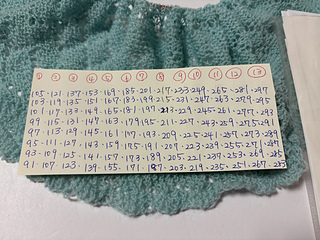 ① ② ③ ④ ⑤ ⑥ ⑦ ⑧ ⑨ ⑩ ⑪ ⑫ ⑬
105·121·137·153·169·185·201·217·233·249·265·281·297
103·119·135·151·167·183·199·215·231·247·263·279·295
101·117·133·149·165·181·197·213·229·245·261·277·293
99·115·131·147·163·179·195·211·227·243·259·275·291
97·113·129·145·161·177·193·209·225·241·257·273·289
95·111·127·143·159·175·191·207·223·239·255·271·287
93·109·125·141·157·173·189·205·221·237·253·269·285
91·107·123·139·155·171·187·203·219·235·251·267·283